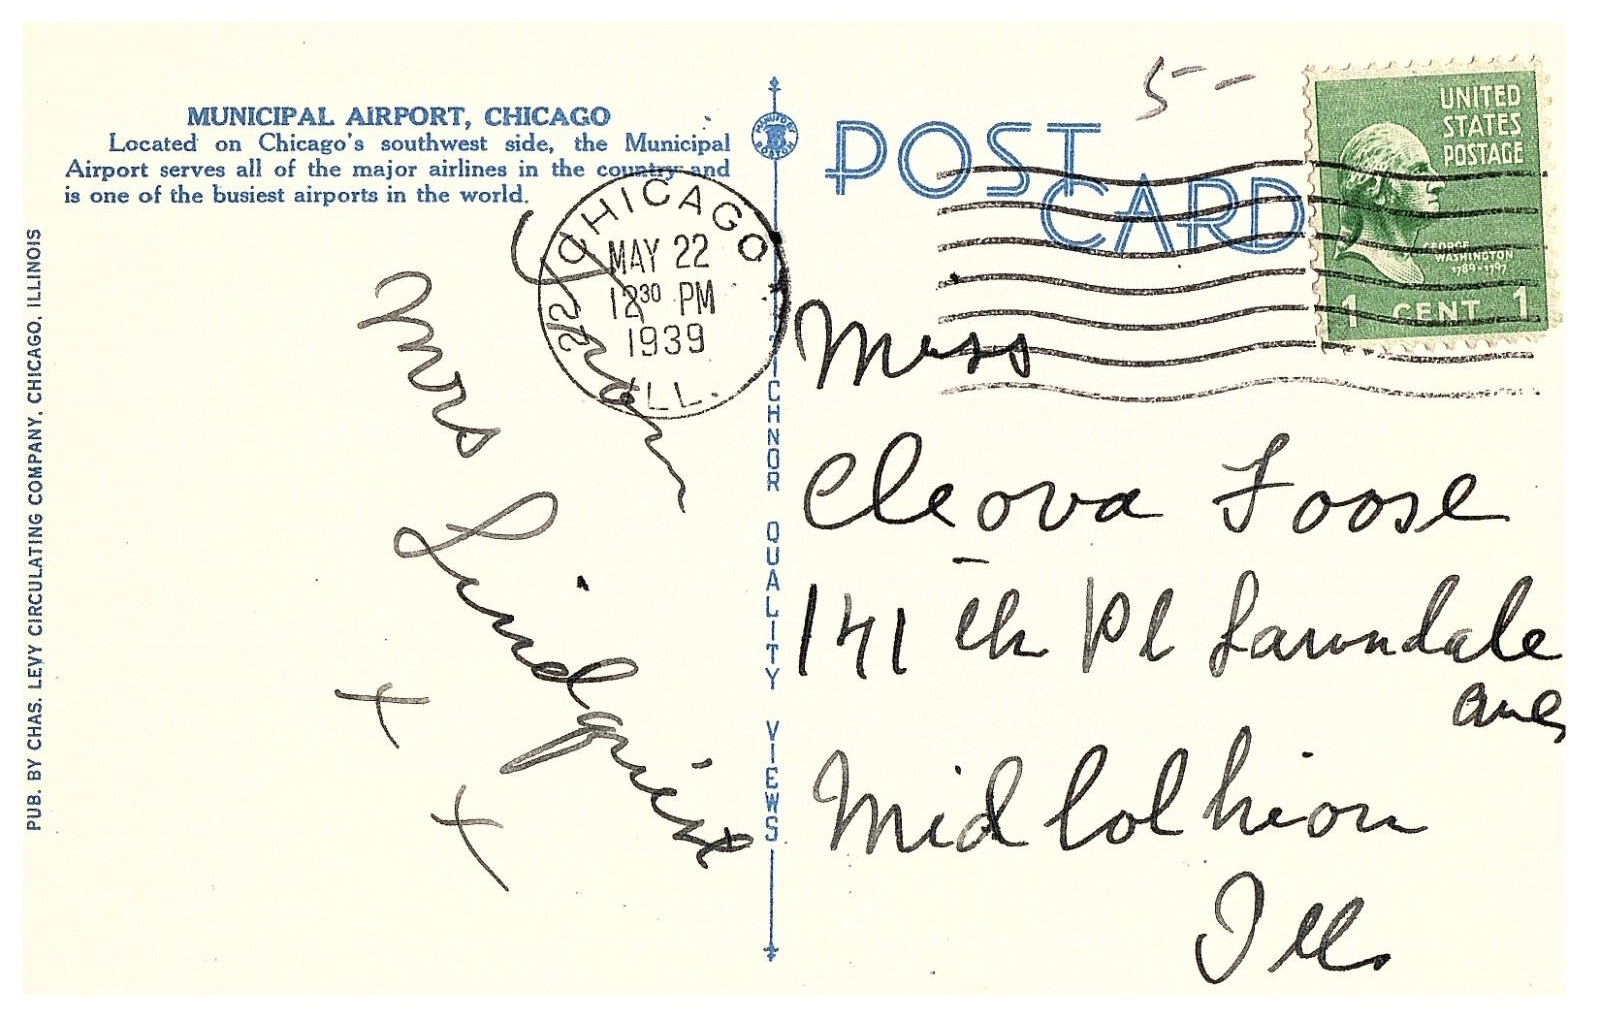 MUNICIPAL AIRPORT, CHICAGO
Located on Chicago's southwest side, the Municipal
Airport serves all of the major airlines in the country and
is one of the busiest airports in the world.
PUB. BY CHAS. LEVY CIRCULATING COMPANY, CHICAGO, ILLINOIS
CHICAGO
22
MAY 22
12 30 PM
1939
ILL.
From
Mrs Lindquist
x
x
TICHNOR QUALITY VIEWS
5 -
POST
CARD
UNITED
STATES
POSTAGE
GEORGE
WASHINGTON
1789-1797
1 CENT 1
Miss
Cleova Foose
141 th Pl Lawndale
ave
Midlolhion
Ill.